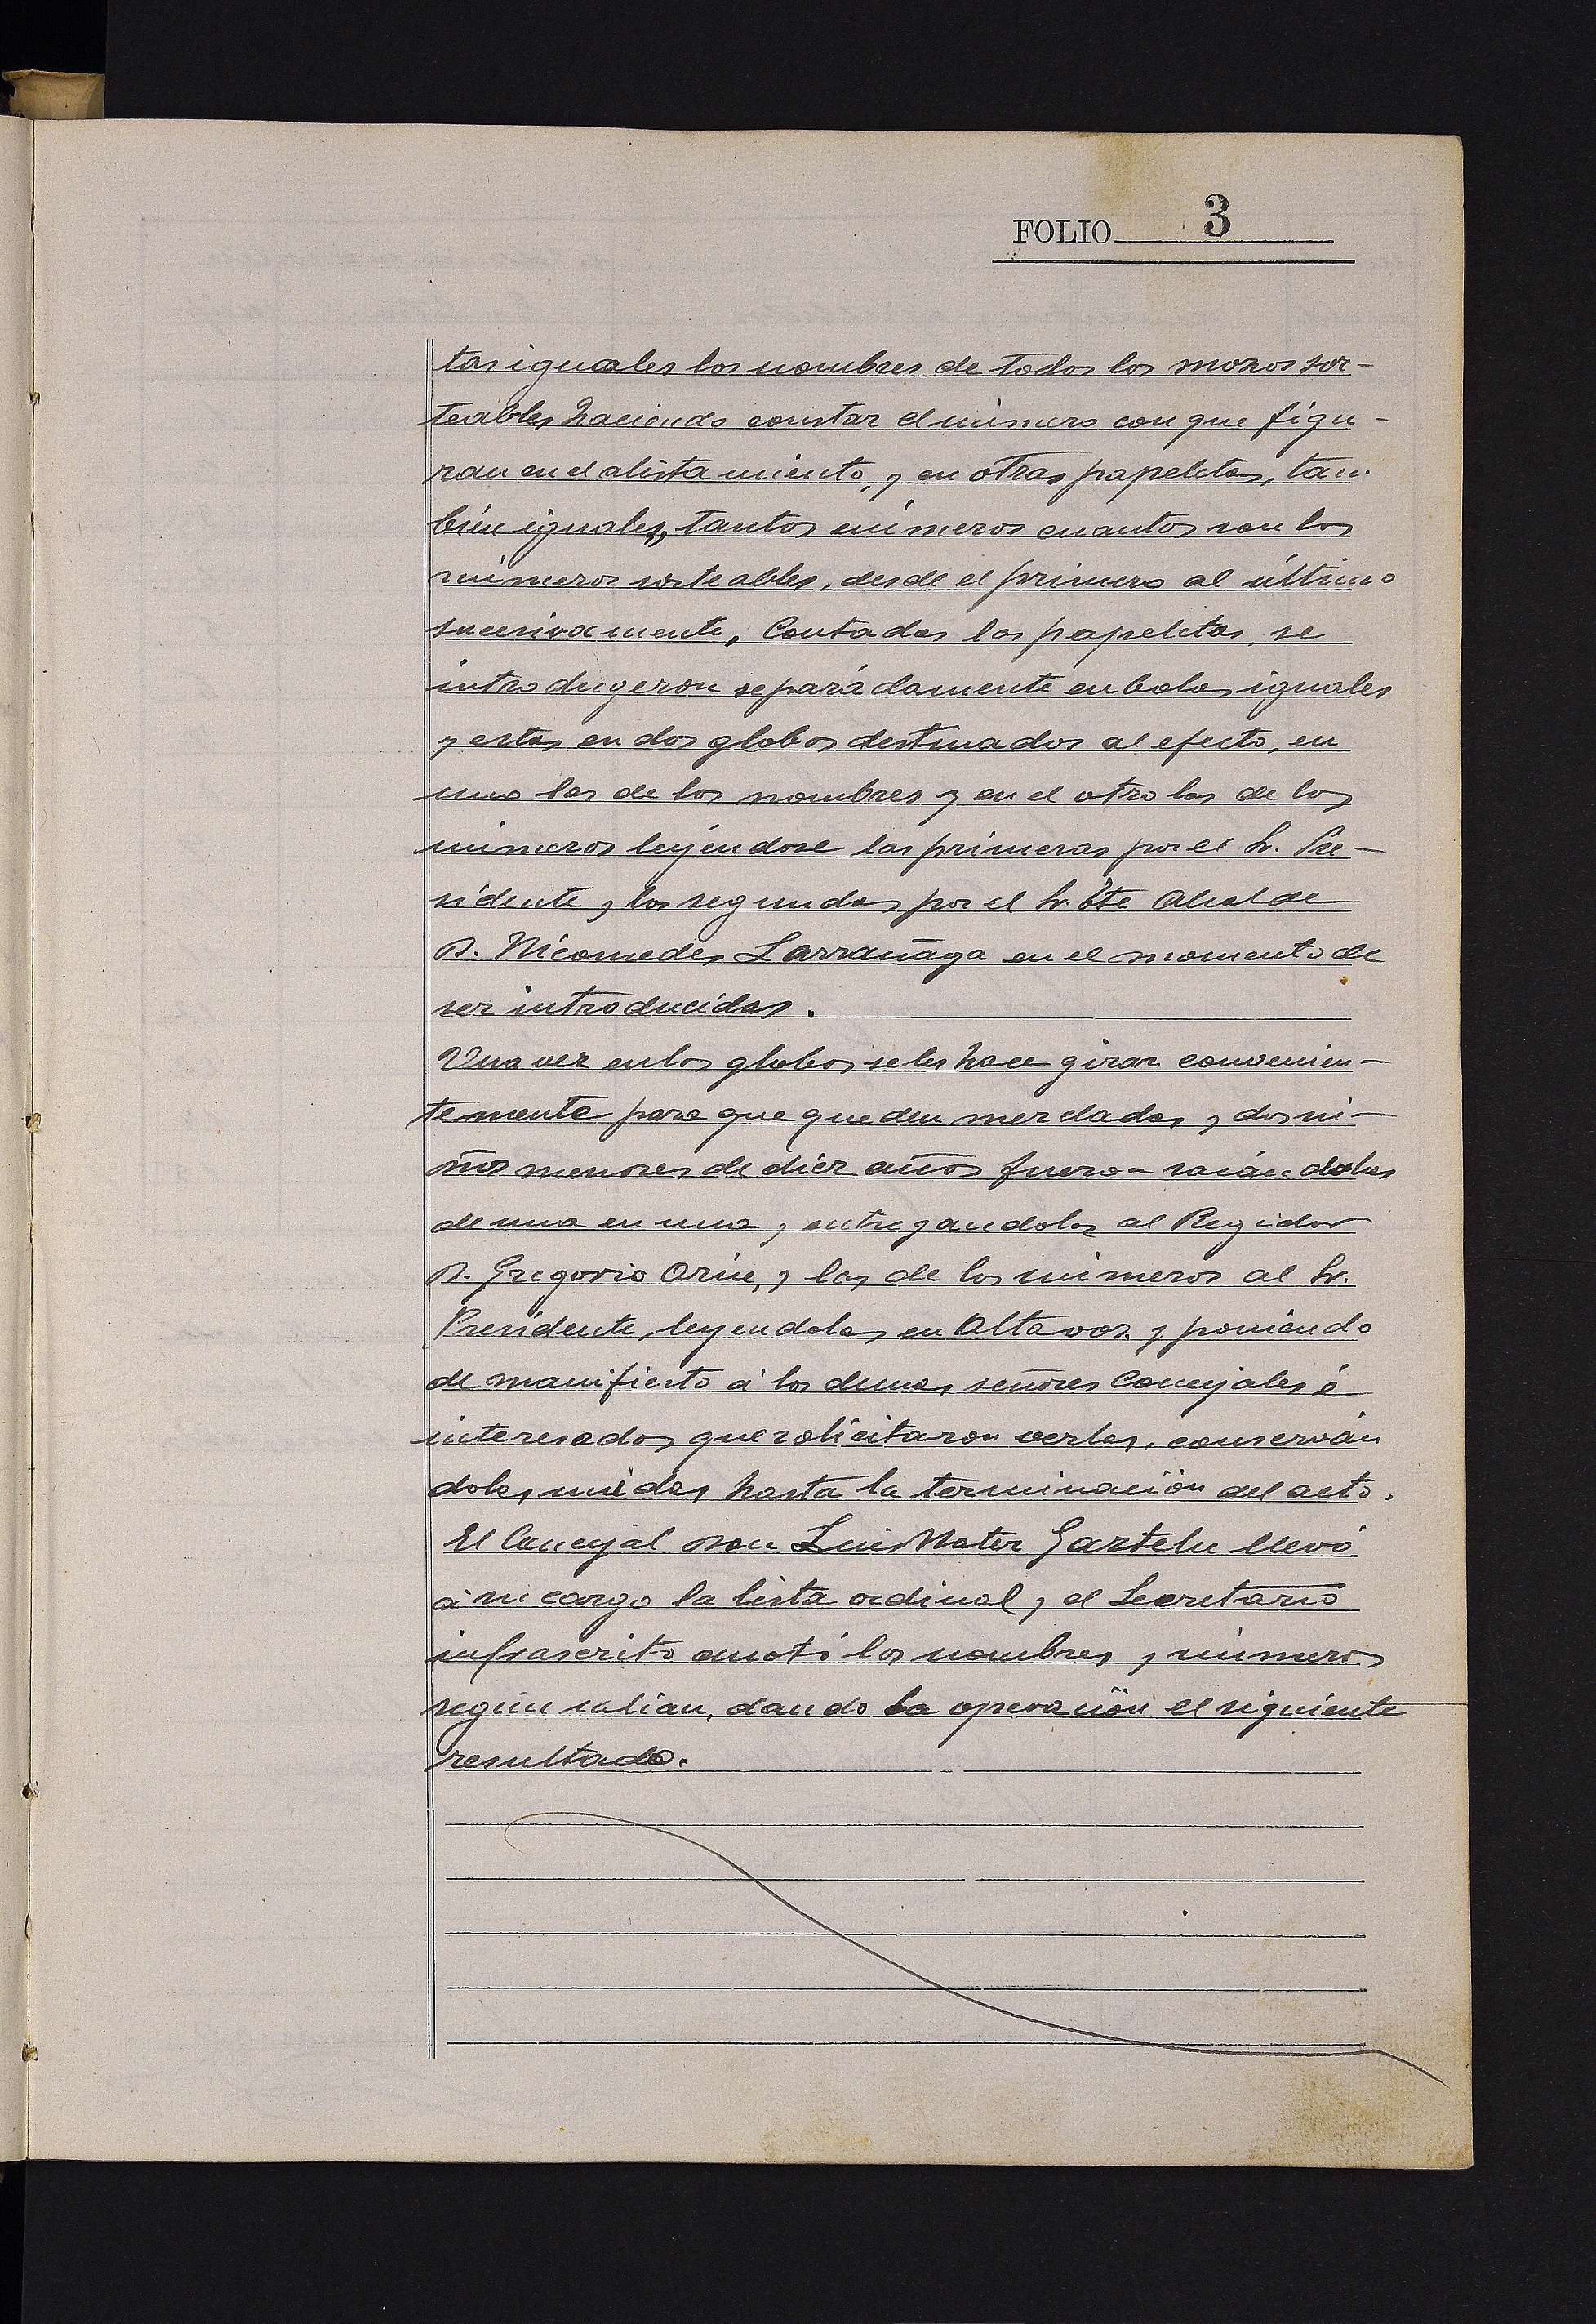 FOLIO 3
tas iguales los nombres de todos los mozos sor-
teables haciendo constar el número con que figu-
ran en el alistamiento, y en otras papeletas, tam-
bién iguales, tantos números cuantos son los
números sorteables, desde el primero al último
sucesivamente, Contadas las papeletas, se
introdugeron separádamente en bolas iguales
y estas en dos globos destinados al efecto, en
uno las de los nombres y en el otro las de los
números leyéndose las primeras por el Sr. Pre-
sidente y las segundas por el Sr. tte Alcalde
D. Nicomedes Larrañaga en el momento de
ser introducidas.
Una vez en los globos se les hace girar convenien-
temente para que queden mezclados, y dos ni-
ños menores de diez años fueron sacándolas
de una en una, y entregandolas al Regidor
D. Gregorio y las de los números al Sr.
Presidente, leyendolas en Alta voz y poniendo
de manifiesto á los demas señores Concejales é
interesados que solicitaron verlas, conserván
dolas unidas hasta la terminación del acto.
El Concejal Don Luis Mater Gaztelu llevó
á su cargo la lista ordinal, y el Secretario
infrascrito anotó los nombres y números
según salian, dando la operación el siguiente
resultado.